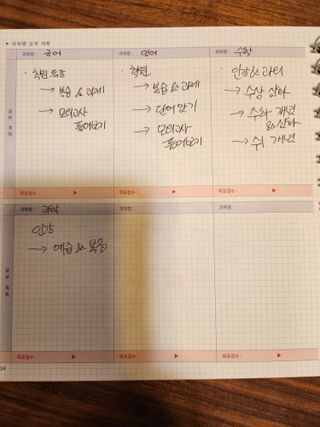 ▶ 과목별 공부 계획
과목명: 국어
과목명: 영어
과목명: 수학
공부 계획
· 학원 특강
→ 복습 & 과제
→ 모의고사
풀어보기
· 학원
→ 복습 & 과제
→ 단어 암기
→ 모의고사
풀어보기
· 인강 & 과외
→ 수상 심화
→ 수하 개념
& 심화
→ 수1 개념
목표점수: ▶
목표점수: ▶
목표점수: ▶
과목명: 과학
과목명:
과목명:
공부 계획
인강
→ 예습 & 복습
목표점수: ▶
목표점수: ▶
목표점수: ▶
14